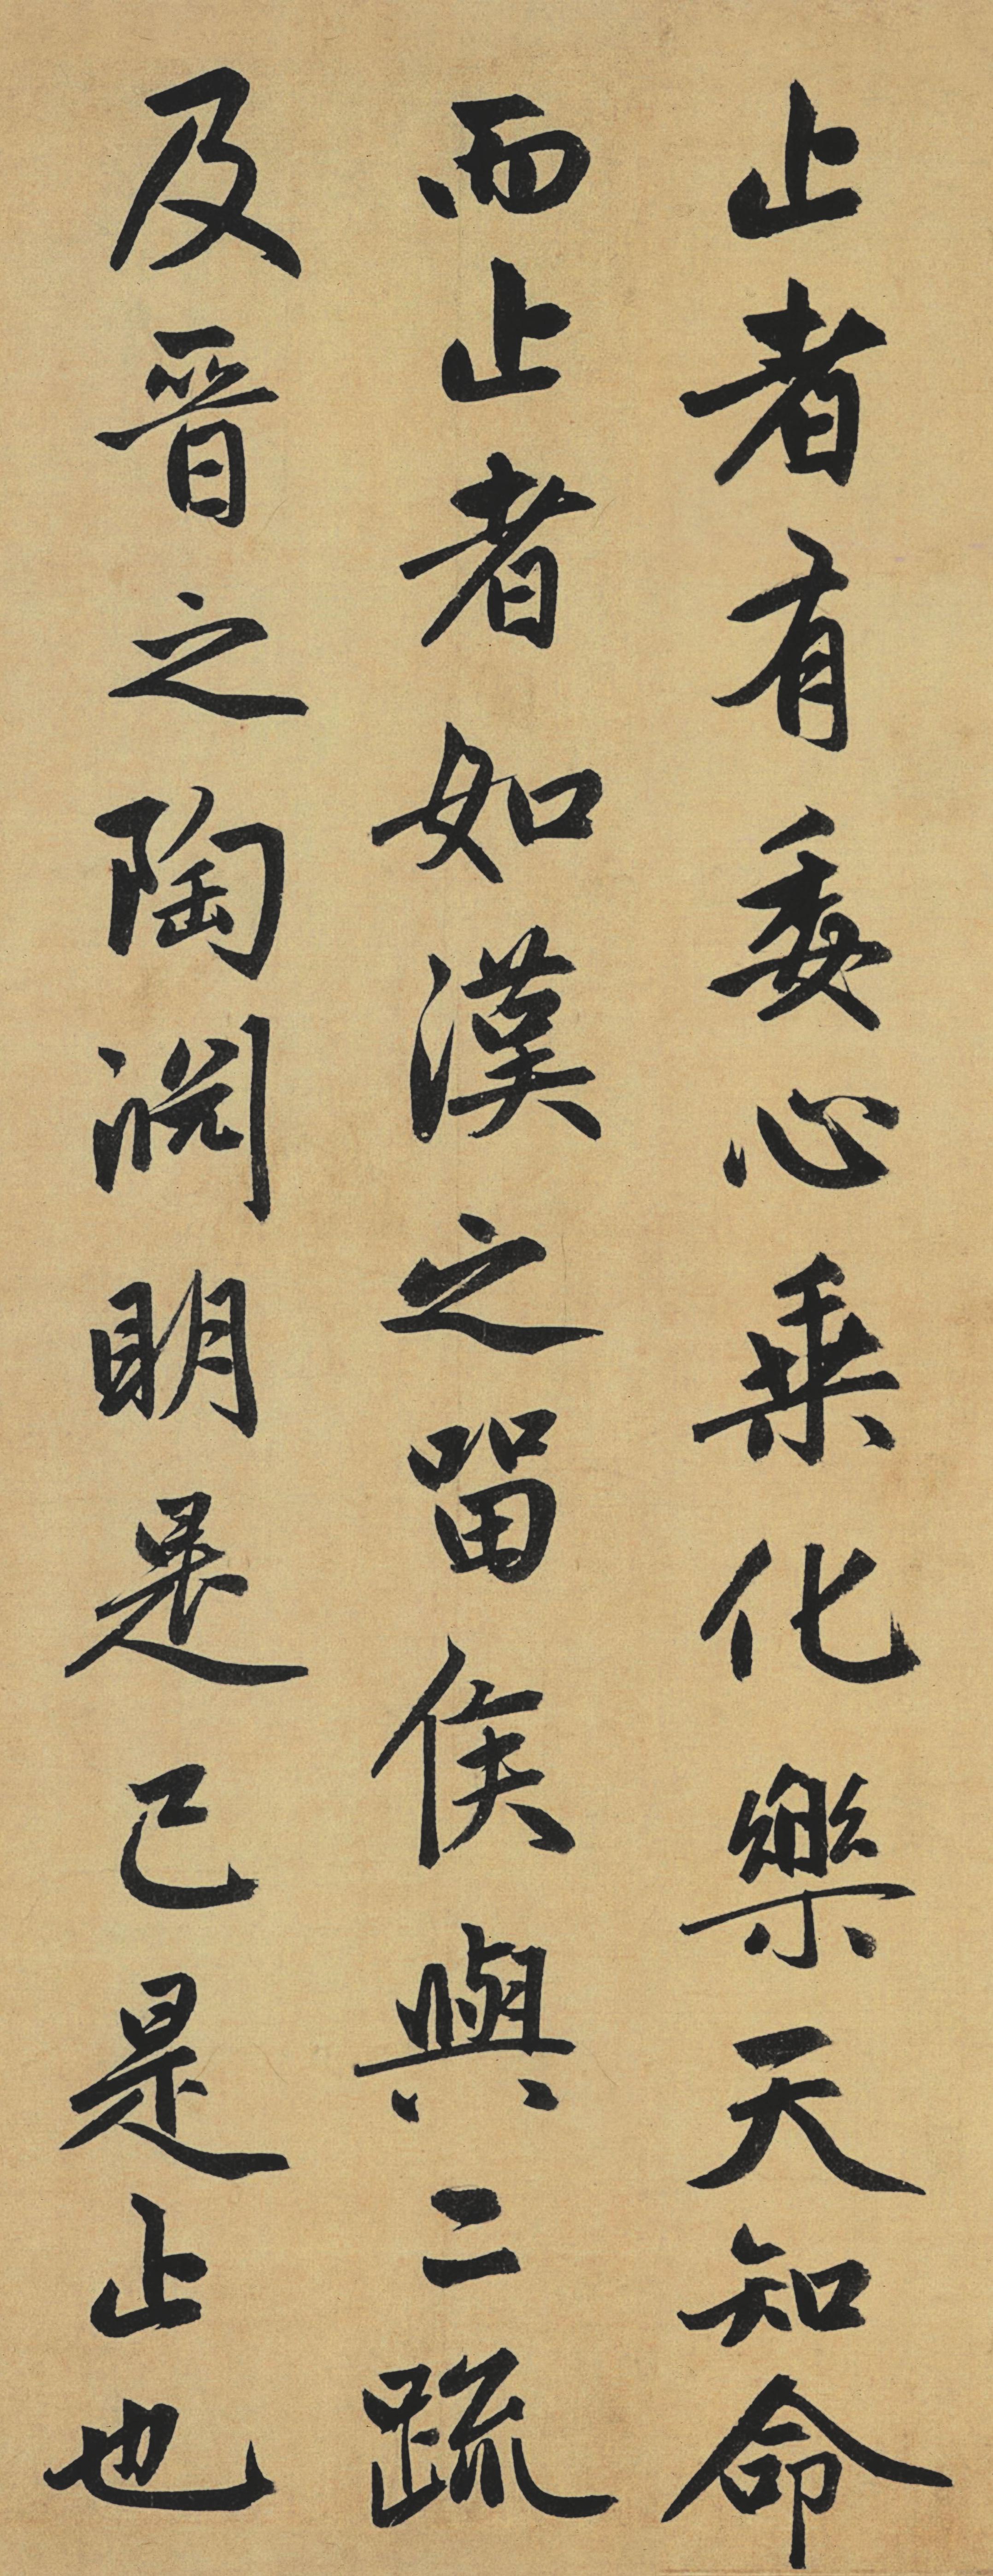 止者有委心乗化樂天知命
而止者如漢之留侯與二疏
及晋之陶渊明是已是止也